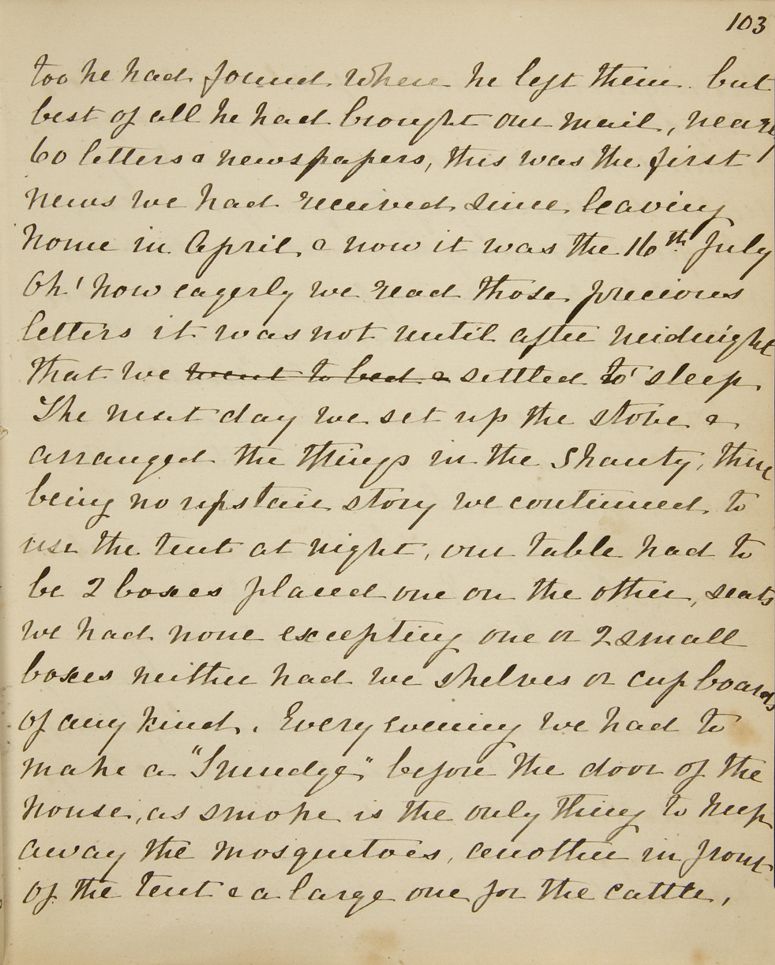 103
too he had found where he left them. but
best of all he had brought our mail, nearly
60 letters & newspapers, this was the first
news we had received since leaving
home in April, & now it was the 16th July
Oh! how eagerly we read those precious
letters it was not until after midnight
that we went to bed & settled to sleep.
The next day we set up the stove &
arranged the things in the Shanty, there
being no upstair story we continued to
use the tent at night, our table had to
be 2 boxes placed one on the other, seats
we had none excepting one or 2 small
boxes neither had we shelves or cupboards
of any kind. Every evening we had to
make a "Smudge" before the door of the
house, as smoke is the only thing to keep
away the mosquitoes, another in front
of the tent & a large one for the cattle,